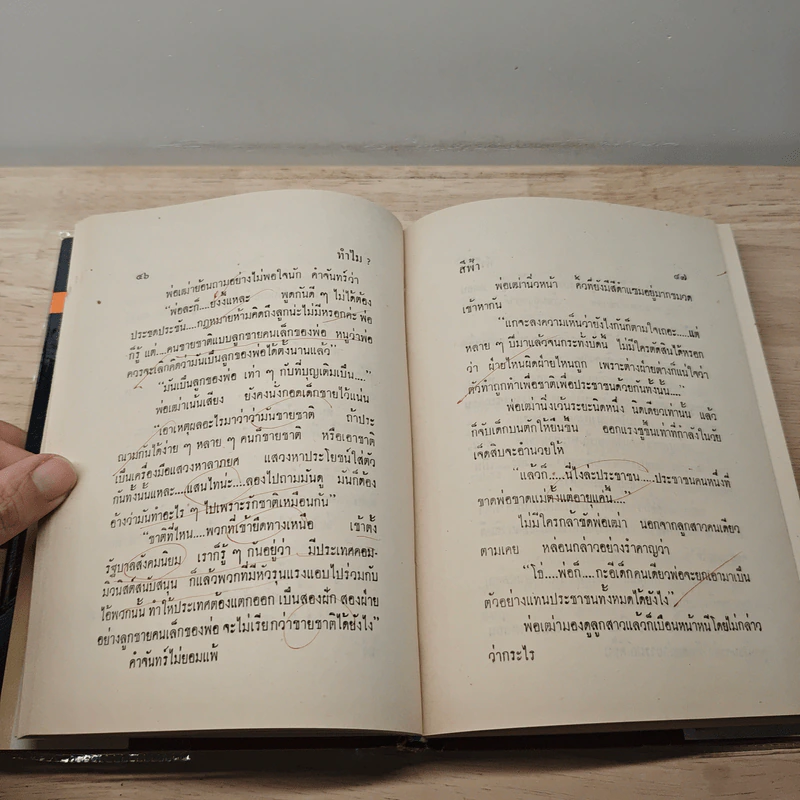 ทำไม ?
๕๖
พ่อเฒ่าย้อนถามอย่างไม่พอใจนัก คำจันทร์ว่า
"พ่อละก็....ยังงี้แหละ พูดกันดี ๆ ไม่ได้ต้อง
ประชดประชน....กฎหมายห้ามคิดถึงลูกน่ะไม่มีหรอกค่ะ พ่อ
ก็รู้ แต่....คนขายชาติแบบลูกชายคนเล็กของพ่อ หนูว่าพ่อ
ควรจะเลิกคิดว่ามันเป็นลูกของพ่อได้ตั้งนานแล้ว"
"มันเป็นลูกของพ่อ เท่า ๆ กับที่บุญเติมเป็น...."
พ่อเฒ่าเน้นเสียง ยังคงนั่งกอดเด็กชายไว้แน่น
"เอาเหตุผลอะไรมาว่าว่ามันขายชาติ ถ้าประ
ณามกันได้ง่าย ๆ หลาย ๆ คนก็ขายชาติ หรือเอาชาติ
เป็นเครื่องมือแสวงหาลาภยศ แสวงหาประโยชน์ใส่ตัว
กันทั้งนั้นแหละ....แสนไทน่ะ....ลองไปถามมันดู มันก็ต้อง
อ้างว่ามันทำอะไร ๆ ไปเพราะรักชาติเหมือนกัน"
"ชาติที่ไหน....พวกที่เข้ายึดทางเหนือ เข้าตั้ง
รัฐบาลสังคมนิยม เราก็รู้ ๆ กันอยู่ว่า มีประเทศคอม-
มิวนิสต์สนับสนุน ก็แล้วพวกที่มีหัวรุนแรงแอบไปร่วมกับ
ไอ้พวกนั้น ทำให้ประเทศต้องแตกออก เป็นสองฝัก สองฝ่าย
อย่างลูกชายคนเล็กของพ่อ จะไม่เรียกว่าขายชาติได้ยังไง"
คำจันทร์ไม่ยอมแพ้
สีฟ้า
๕๗
พ่อเฒ่านิ่วหน้า คิ้วที่ยังมีสีดำแซมอยู่มากขมวด
เข้าหากัน
"แกจะลงความเห็นว่ายังไงกันก็ตามใจเถอะ.....แต่
หลาย ๆ ปีมาแล้วจนกระทั่งบัดนี้ ไม่มีใครตัดสินได้หรอก
ว่า ฝ่ายไหนผิดฝ่ายไหนถูก เพราะต่างฝ่ายต่างก็แน่ใจว่า
ตัวทำถูกทำเพื่อชาติเพื่อประชาชนด้วยกันทั้งนั้น...."
พ่อเฒ่านิ่งเว้นระยะนิดหนึ่ง นิดเดียวเท่านั้น แล้ว
ก็จับเด็กบนตักให้ยืนขึ้น ออกแรงชูขึ้นเท่าที่กำลังในวัย
เจ็ดสิบจะอำนวยให้
"แล้วก็.....นี่ไงล่ะประชาชน....ประชาชนคนหนึ่งที่
ขาดพ่อขาดแม่ตั้งแต่อายุแค่นี้...."
ไม่มีใครกล้าขัดพ่อเฒ่า นอกจากลูกสาวคนเดียว
ตามเคย หล่อนกล่าวอย่างรำคาญว่า
"โธ่....พ่อก็....กะอีเด็กคนเดียวพ่อจะยกเอามาเป็น
ตัวอย่างแทนประชาชนทั้งหมดได้ยังไง"
พ่อเฒ่ามองดูลูกสาวแล้วก็เบือนหน้าหนีโดยไม่กล่าว
ว่ากระไร